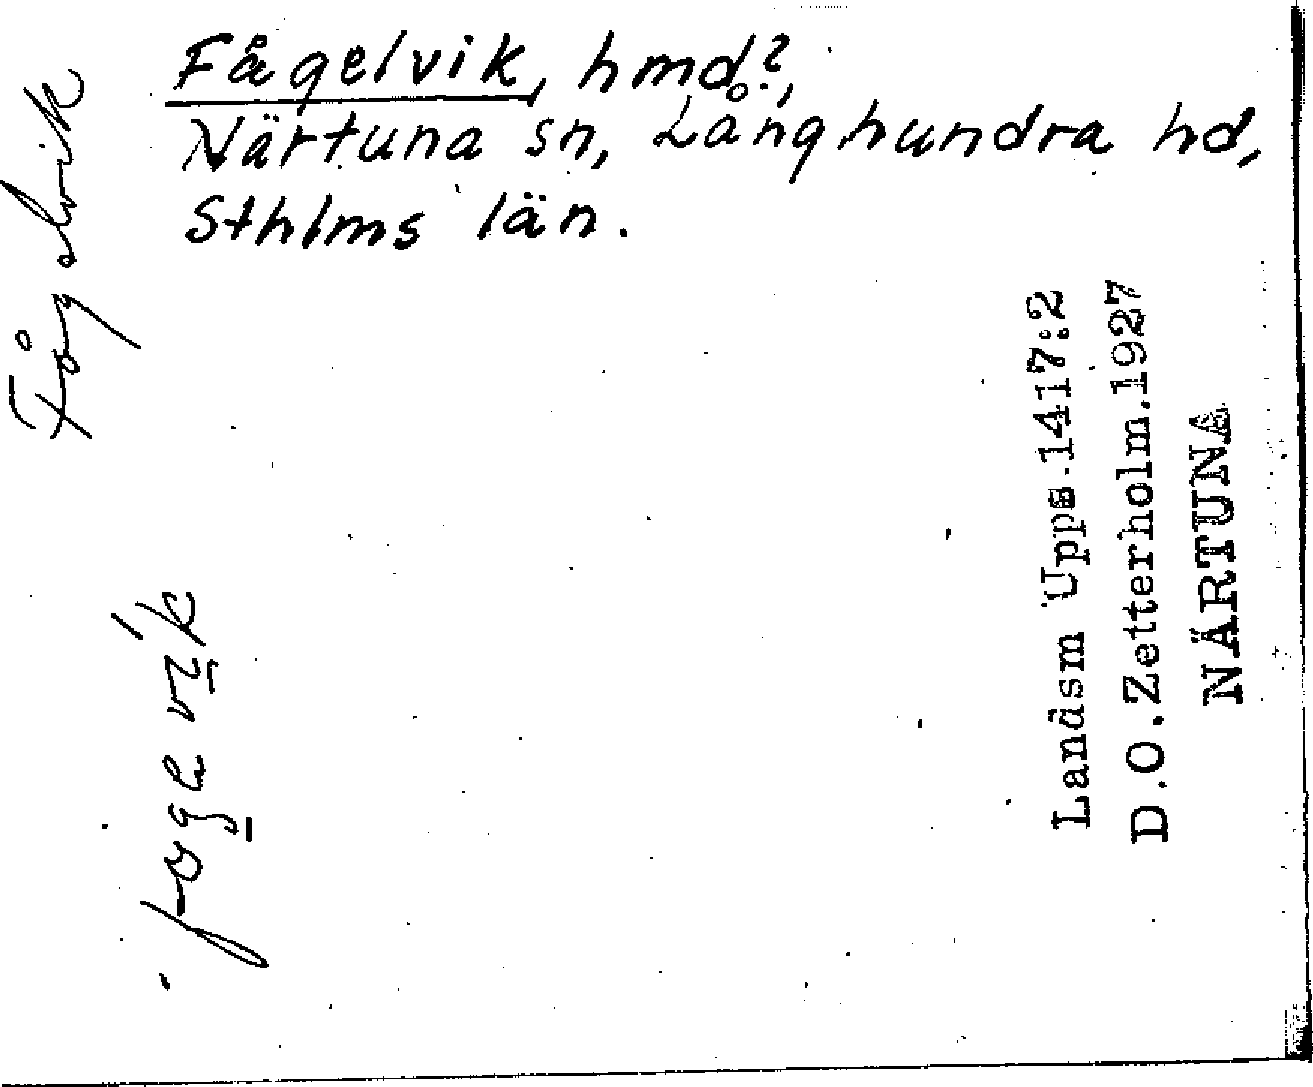 Fågelvik, hmd?,
Närtuna sn, Långhundra hd,
Sthlms län.
Landsm Upps.1417:2
D.O.Zetterholm.1927
NÄRTUNA